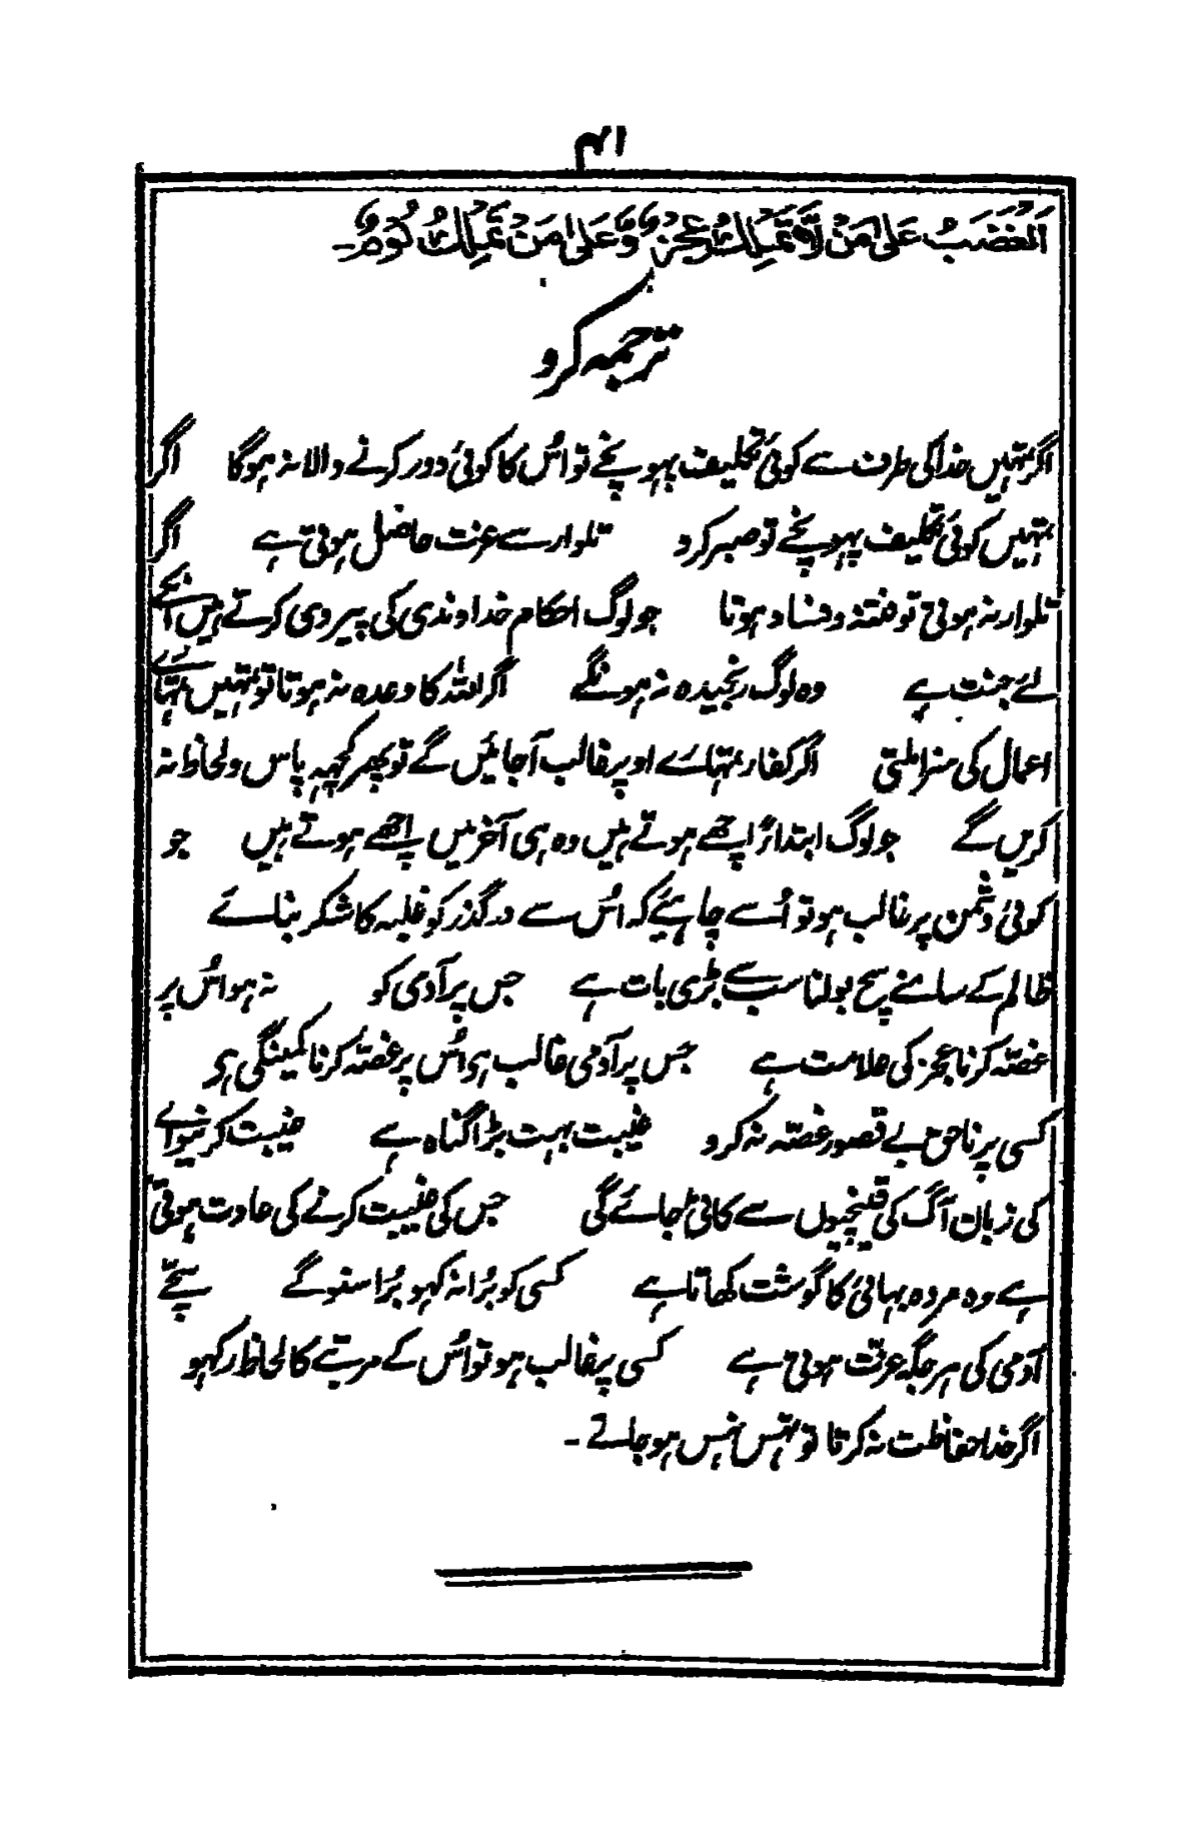 ۱۴۱
اَلْغَضَبُ عَلیٰ مَنْ لَا تَمْلِكُ عَجْزٌ وَّ عَلیٰ مَنْ تَمْلِكُ لُؤْمٌ۔
ترجمہ کرو
اگر تمہیں خدا کی طرف سے کوئی تکلیف پہونچے تو اُس کا کوئی دور کرنے والا نہ ہوگا اگر
تمہیں کوئی تکلیف پہونچے تو صبر کرو تلوار سے عزت حاصل ہوتی ہے اگر
تلوار نہ ہوتی تو فتنہ و فساد ہوتا جو لوگ احکام خداوندی کی پیروی کرتے ہیں انکے
لئے جنت ہے وہ لوگ رنجیدہ نہ ہونگے اگر اللہ کا وعدہ نہ ہوتا تو تمہیں تمہارے
اعمال کی سزا ملتی اگر کفار تمہارے اوپر غالب آجائیں گے تو پھر کچھ پاس و لحاظ نہ
کریں گے جو لوگ ابتداءً اچھے ہوتے ہیں وہ ہی آخر میں اچھے ہوتے ہیں جو
کوئی دشمن پر غالب ہو تو اُسے چاہئے کہ اُس سے درگذر کو غلبہ کا شکر بنائے
ظالم کے سامنے سچ بولنا سب سے بڑی بات ہے جس پر آدمی کو نہ ہو اُس پر
غصّہ کرنا عجز کی علامت ہے جس پر آدمی غالب ہو اُس پر غصّہ کرنا کمینگی ہی
کسی پر ناحق بے قصور غصّہ نہ کرو غیبت بہت بڑا گناہ ہے غیبت کرنیوالے
کی زبان آگ کی قینچیوں سے کاٹی جائے گی جس کی غیبت کرنے کی عادت ہوتی
ہے وہ مردہ بھائی کا گوشت کھاتا ہے کسی کو بُرا نہ کہو بُرا سنوگے سچّے
آدمی کی ہر جگہ عزّت ہوتی ہے کسی پر غالب ہو تو اُس کے مرتبے کا لحاظ رکہو
اگر خدا حفاظت نہ کرتا تو تہس نہس ہو جاتے۔